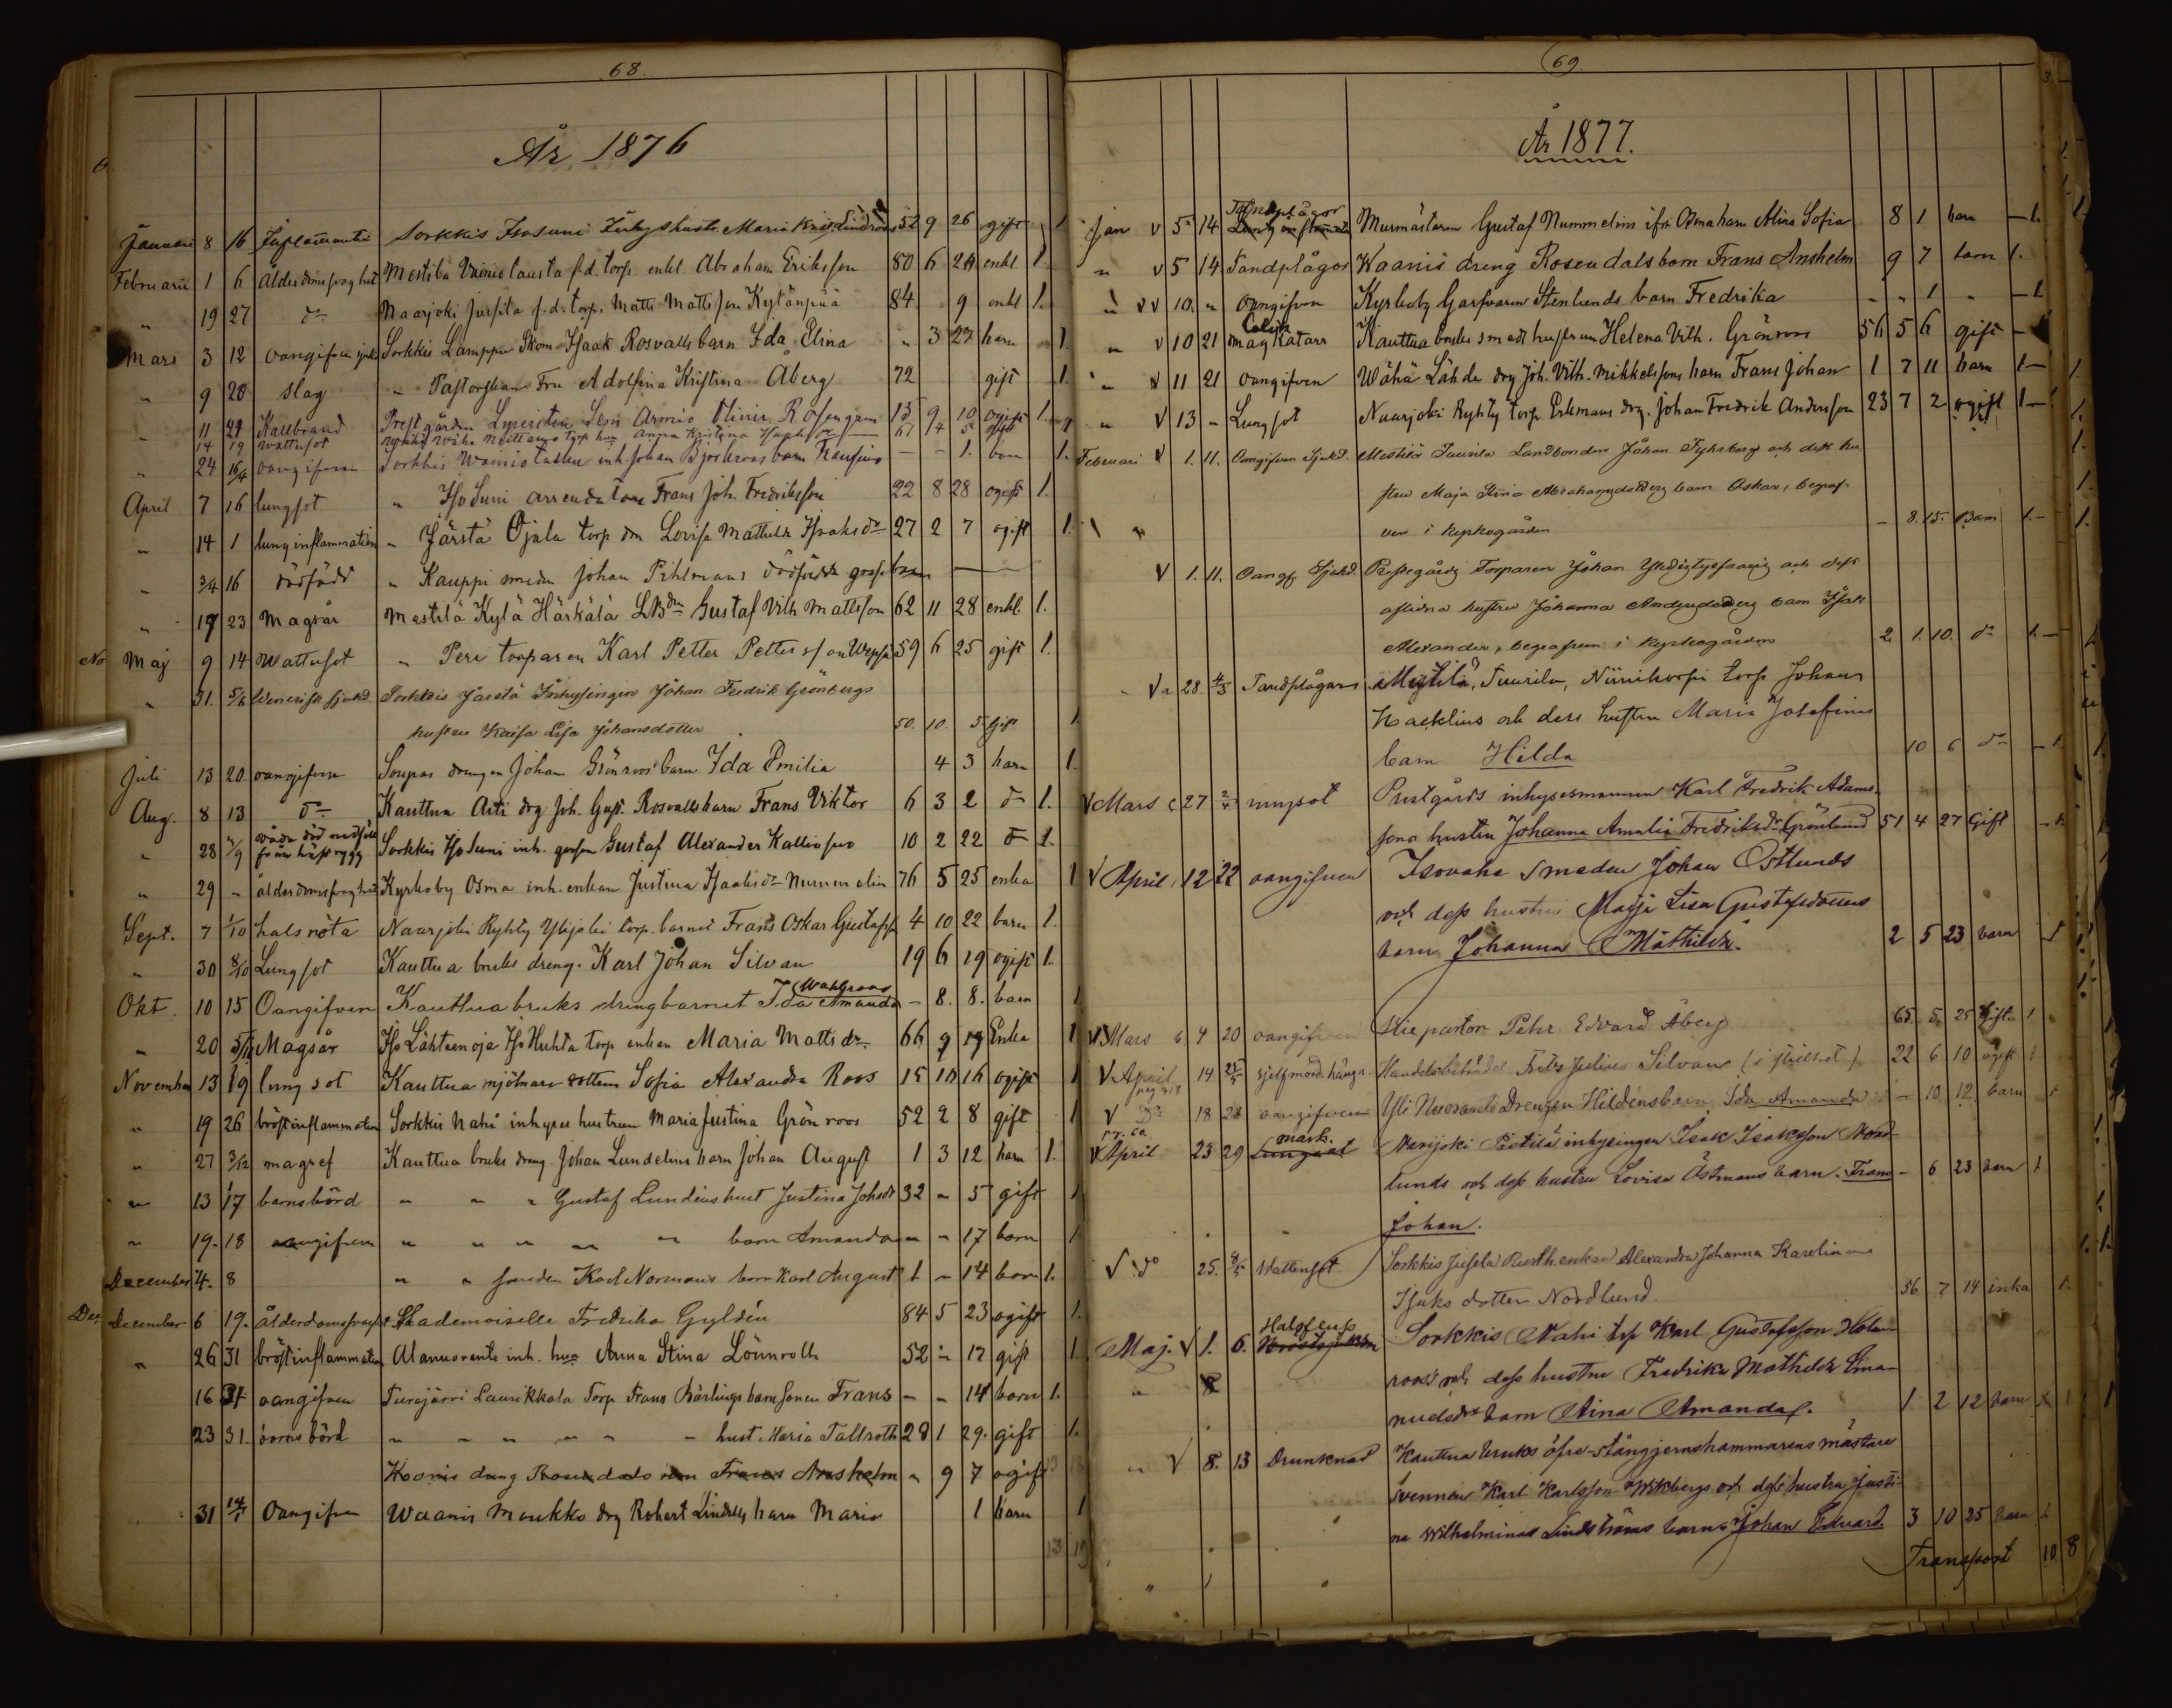 68.
År 1876
Januari 8 16 Inflammation Sorkkis Isosuni Inhys hustr. Maria Krist. Lindroos 52 9 26 gift 1
Februari 1 6 Ålderdomssvaghet Mestilä Vainiotausta f.d. torp. enkl. Abraham Eriksson 80 6 24 enkl 1
" 19 27 do Naarjoki f.d. torp. Matts Mattsson Kylänpää 84 9 enkl 1.
Mars 3 12 oangifven sjuk Sorkkis Lamppu Skom Isaak Rosvalls barn Ida Elina " 3 27 barn 1.
" 9 20 slag " Pastorskan Fru Adolfina Kristina Åberg 72 gift 1.
" 11 27 Kallbrand Prestgården Lyceisten Armio Olivir Rosengren 15 9 10 ogift 1.
14 19 Wattusot
" 24 16/4 oangifven Sorkkis Wainiotausta inh. Johan Björkroos barn — — 1. barn 1.
April 7 16 lungsot " Iso Suni arrendatorn Frans Joh. Fredriksson 22 8 28 ogift 1.
" 14 1 lunginflammation " Järstä Ojala torp dm Lovisa Mathilda Isaksdr 27 2 7 ogift 1.
" 3/4 16 dödfödd " Kauppi smeden Johan Pihlmans dödfödde gosse barn
" 17 23 magsår Mestilä Kylä Härkälä Gustaf Vilh Mattsson 62 11 28 enkl 1.
No Maj 9 14 Wattusot " Pere torparen Karl Petter Pettersson 59 6 25 gift 1.
" 31. 5/6 Venerisk sjukd. Sorkkis Järstä Inhysingen Johan Fredrik Grönbergs
hustru Kaisa Lisa Johansdotter 50. 10. 5. Gift 1
Juli 13 20 oangifven Soupas drengen Johan Grönroos' barn Ida Emilia 4 3 barn 1.
Aug. 8 13 do Kauttua Aiti drg Joh. Gust. Rosvalls barn Frans Viktor 6 3 2 do 1.
" 28 våda död nedfall från hästrygg Sorkkis Iso Suni inh. gossen Gustaf Alexander 10 2 22 do 1.
" 29 - ålderdomssvaghet Kyrkoby Osma inh. enkan Justina Isaaksdr Nummelin 76 5 25 enka 1
Sept. 7 1/10 halsröta Naarjoki Ryhty Ylijoki torp. barnet Frans Oskar Gustafss 4 10 22 barn 1.
" 30 8/10 Lungsot Kauttua bruks dreng. Karl Johan Silvan 19 6 19 ogift 1.
Okt. 10 15 Oangifven Kauttua bruks drengbarnet Ida Amanda (Wahlroos - 8. 8. barn 1
" 20 5/11 Magsår Iso Lähteenoja Iso Huhta torp enkan Maria Mattsdr. 66 9 19 Enka 1
November 13 19 lungsot Kauttua mjölnare dottern Sofia Alexandra Roos 15 10 16 ogift 1
" 19 26 bröstinflammation Sorkkis Nahi inhyses hustrun Maria Justina Grönroos 52 2 8 gift 1
" 27 3/12 magref Kauttua bruks dreng. Johan Lundelins barn Johan August 1 3 12 barn 1.
" 13 17 barnsbörd " " " Gustaf Lundéns hust Justina Johsdr 32 " 5 gift 1
" 19. 18 oangifven " " " " " barn Amanda " - 17 barn 1
December 4. 8 " " smeden Karl Normans barn Karl August 1 - 14 barn 1.
Dec. December 6 19. ålderdomssvaghet Mademoiselle Fredrika Gyldén 84 5 23 ogift 1.
" 26 31 bröstinflammation inh. hus Anna Stina Lönnroth 52 " 17 gift 1.
16 31 oangifven Turajärvi Laurikkala Torp Frans Bärlings barn sonen Frans - - 14 barn 1.
23 31. barnsbörd " " " " " " hust. Maria Tallroth 28 1 29. gift 1.
Kaanis dreng Rosendals barn Frans Anshelm " 9 7 ogift
31 14/1 Oangifven Waanis Maukko drg Robert Lindells barn Maria 1 barn 1
13 19
69.
År 1877.
Jan V 5 14 Tandplågor Murmästaren Gustaf Nummelins ifr. Osma barn Alina Sofia 8 1 barn — 1.
" V 5 14 Tandplågor Kaanis dreng Rosendals barn Frans Anshelm 9 7 barn 1.
" V 10. " oangifven Kyrkoby Garfvaren Stenlunds barn Fredrika - " 1 " — 1
" V 10 21 Colik mag Katarr Kauttua bruks smeds hustrun Helena Vilh. Grönroos 56 5 6 gift —
" V 11 21 oangifven Wähä Lähde drg Joh. Vilh. Mikkelssons barn Frans Johan 1 7 11 barn 1 —
" V 13 - Lungsot Naarjoki Ryhty torp Erkmans drg. Johan Fredrik Andersson 23 7 2 ogift 1 —
Februari V 1. 11. Oangifven Sjukd. Mestilä Tuurila Landbonden Johan Fyhrberg och dess hu-
stru Maja Stina Abrahamsdotters barn Oskar, begraf-
ven i kyrkogården - 8. 15. Barn 1. -
V 1. 11. Oangf. Sjukd. Prestgårds Torparen Johan och dess
aflidna hustru Johanna Andersdotters barn Isak
Alexander, begrafven i kyrkogården 2 1. 10. do 1. —
V 28. 4/3 Tandplågor Mestilä, Tuurila, Niinikorpi torp Johan
Hacklins och dess hustru Maria Josefinas
barn Hilda 10 6 do — 1.
V Mars 27 2/4 lungsot Prestgårds inhysesmannen Karl Fredrik Adams-
sons hustru Johanna Amalia Fredriksdr Grönlund 51 4 27 Gift — 1.
V April 12 22 oangifven Isovahe smeden Johan Östlunds
och dess hustru Maja Lisa Gustafsdotters
barn Johanna Mathilda. 2 5 23 barn 1
V Mars 4 20 oangifven Vice pastor Pehr Edvard Åberg 65 5. 25 Gift. 1
V April 14 25/5 sjelfmord hängn. Handelsbetjänten Fritz Julius Silvan (i stillhet) 22 6 10 ogift 1
V Do 18 28 oangifven Yli Nuoranti Drengen Hildéns barn Ida Amanda - 10 12. barn 1
V April 23 29 mask. Lungsot Narijoki Pietilä inhysingen Isak Isaksson Nord-
lunds och dess hustru Lovisa Östmans barn Frans - 6 23 barn 1
Johan.
V do 25. 8/5 Wattensot Sorkkis Jusela Rusth. enkan Alexandra Johanna Karolina
Isaks dotter Nordlund. 56. 7 14 enka 1.
Maj. V 1. 6. Halsfluss Bröstsjukdom Sorkkis Nahi torp Karl Gustafsson Holm-
roos' och dess hustru Fredrika Mathilda Ema-
nuelsdrs barn Aina Amanda. 1 2 12 barn 1
" V 8. 13 Drunknad Kauttua bruks öfre-stångjernshammarens mästare
svennen Karl Karlsson Wikbergs och dess hustru Justi-
na Wilhelminas Lindströms barn Johan Edvard 3 10 25 barn 1
Transport 10 8